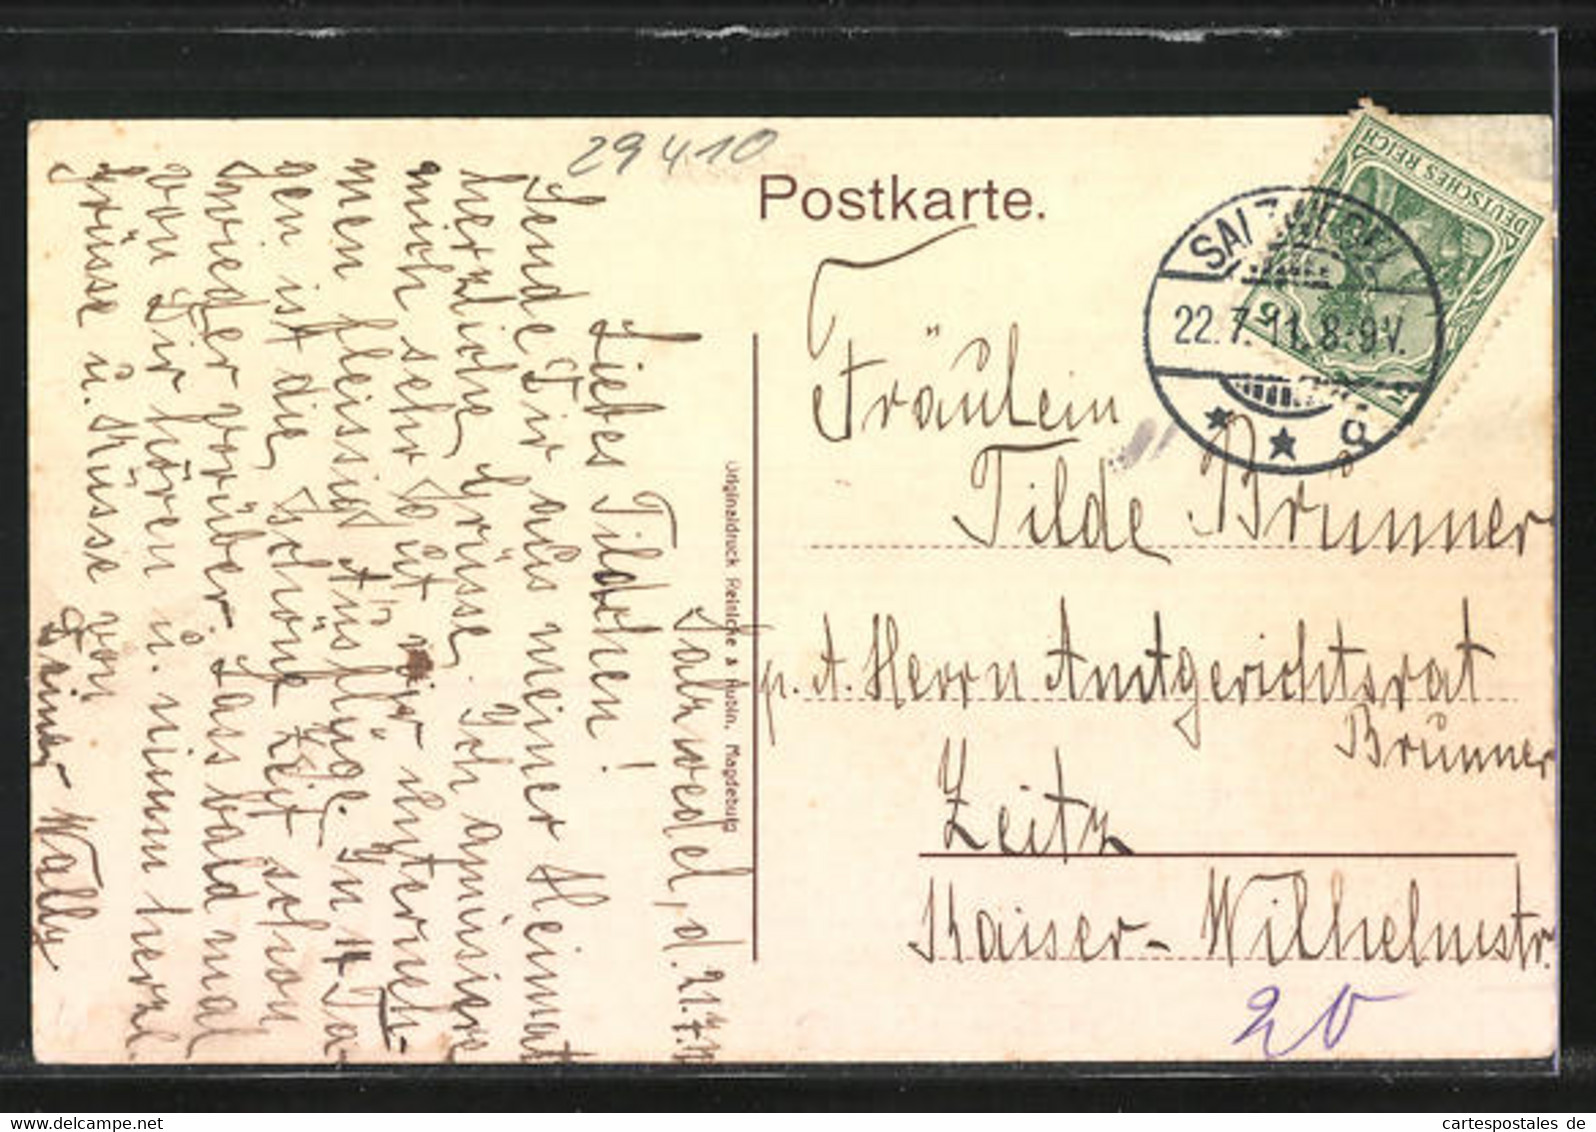 29410
Postkarte.
DEUTSCHES REICH
SALZWEDEL
22.7.11. 8-9V.
Fräulein
Tilde Brunner
p. A. Herrn Amtgerichtsrat
Brunner
Zeitz
Kaiser-Wilhelmstr.
20
Originaldruck Reinicke & Rubin, Magdeburg
Salzwedel, d. 21.7.11
Liebes Tildchen!
Sende Dir aus meiner Heimat
herzliche Grüsse. Ich amüsiere
mich sehr gut, wir unterneh-
men fleissig Ausflüge. In 14 Ta-
gen ist die schöne Zeit schon
wieder vorüber. Lass bald mal
von Dir hören u. nimm herzl.
Grüsse u. Küsse von
Deiner Wally
cartespostales de